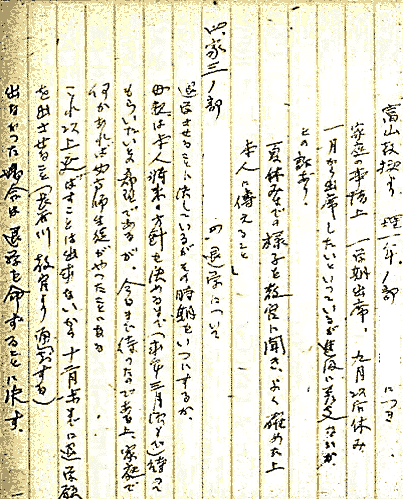 富山 理一年ノ部 につき
家庭の事情上 一学期出席、九月以后休み
一月から出席したいといっているが進級に差支ないか
との
夏休みまでの様子を教官に聞き、よく確めた上
本人に傳えること
四、家三ノ部 の退学について
退学させることに決しているがその時期をいつにするか、
母親は本人将来の方針を決めるまで 三月 待って
もらいたいと希望であるが、今日まで待ったので 上、家庭で
何かあれば 生徒がやったことになる
これ以上延ばすことは出来ないから十二月末までに退学願
を出させること(長谷川教官より通知する)
出なかった場合は退学を命ずることに決す。